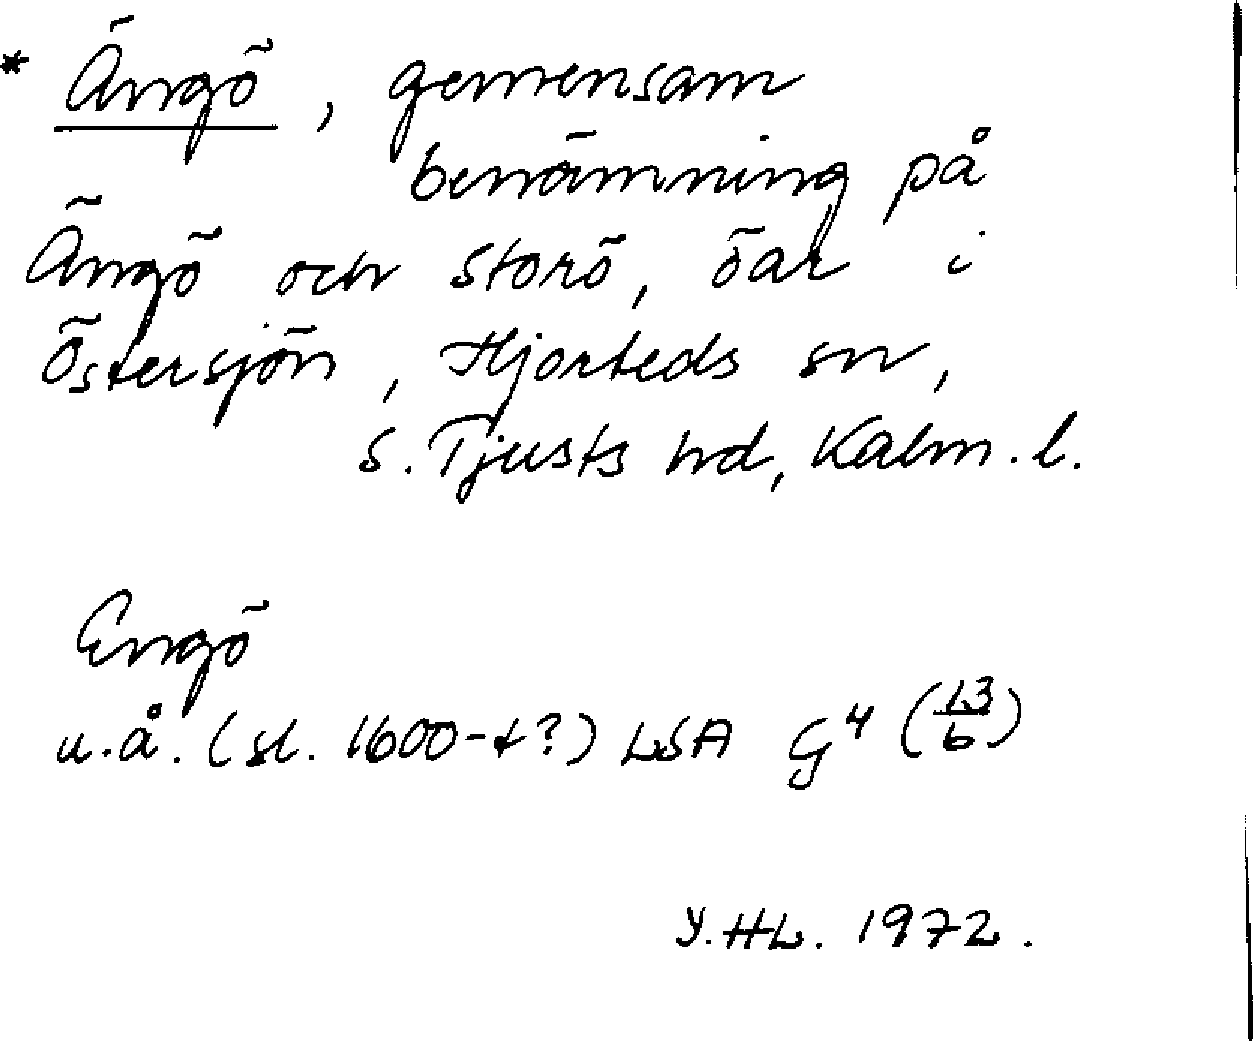 * Ängö, gemensam
benämning på
Ängö och Storö, öar i
Östersjön, Hjorteds sn,
S. Tjusts hd, Kalm. l.
Engö
u.å. (sl. 1600-t?) LSA G⁴ (13/6)
Y.HL. 1972.